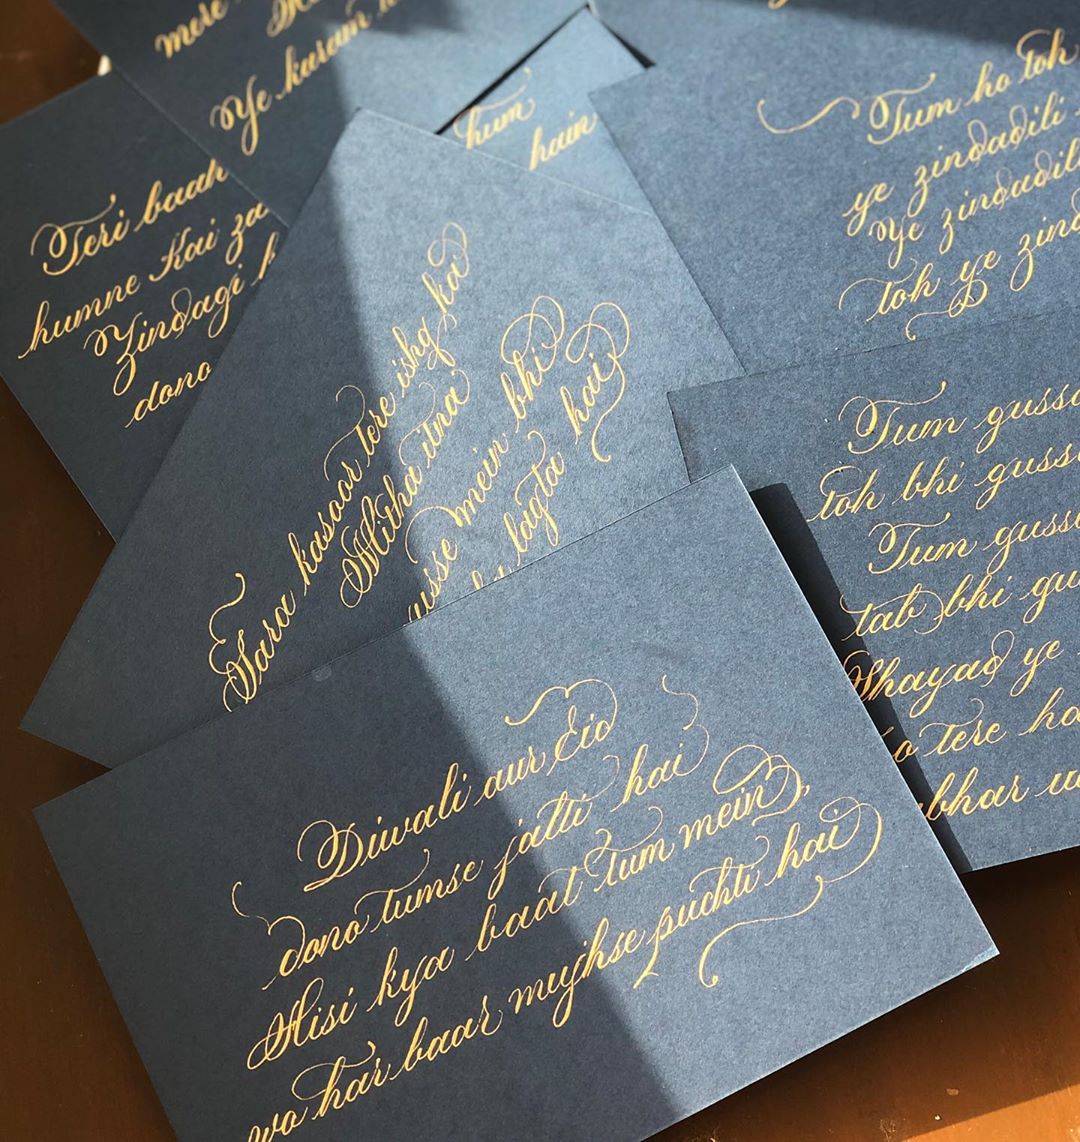 mere
Ye kuram
hum
hain
Teri baah
humne Kai za
Zindagi
dono
Tum ho toh
ye zindadili
Ye zindadili
toh ye zind
Sara kasoor tere ishq ka
Mitha itna
gusse mein bhi
lagta hai
Tum gussa
toh bhi gussa
Tum gussa
tab bhi gu
Shayad ye
tere ho
Diwali aur Eid
dono tumse jalti hai
Aisi kya baat tum mein,
wo har baar mujhse puchti hai